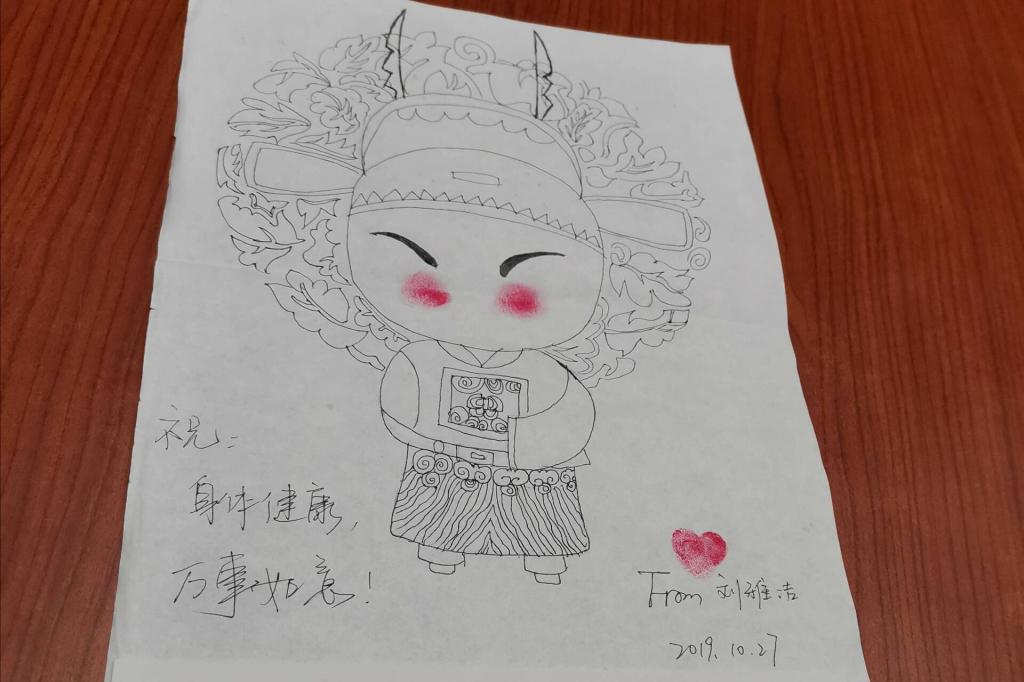 祝：
身体健康，
万事如意！
From 刘雅洁
2019.10.27